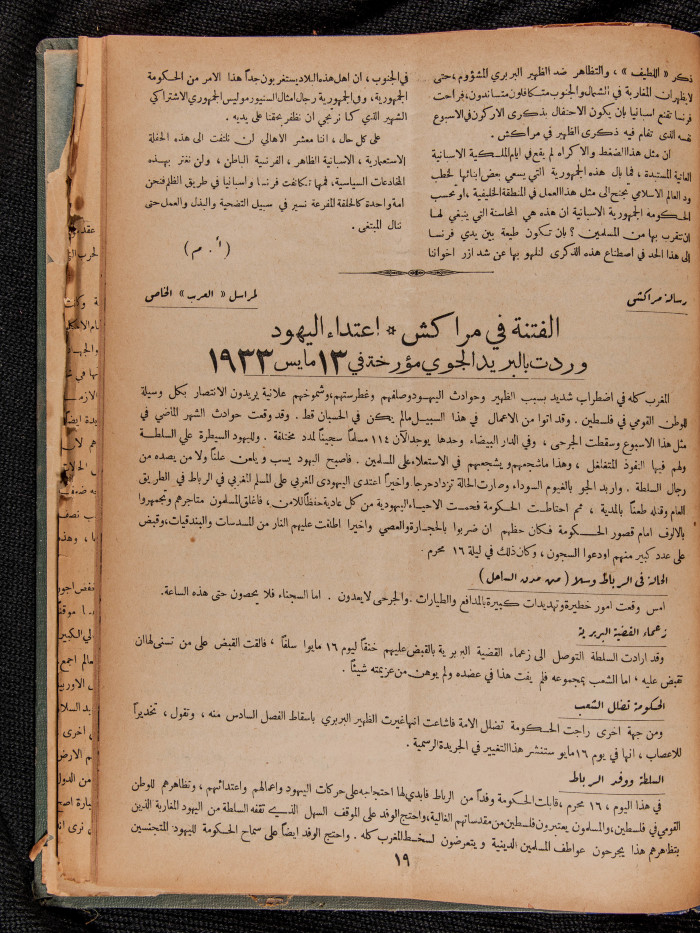 ذكر «اللطيف» ، والتظاهر ضد الظهير البربري المشؤوم ، حتى
لا يظهر ان المغاربة في الشمال والجنوب متكافلون متساندون ، فراحت
فرنسا تقنع اسبانيا بان يكون الاحتفال بذكرى الاركون في الاسبوع
نفسه الذي تقام فيه ذكرى الظهير في مراكش .
ان مثل هذا الضغط والاكراه لم يقع في ايام الملكية الاسبانية
العاتية المستبدة ، فما بال هذه الجمهورية التي يسعى بعض ابنائها لخطب
ود العالم الاسلامي تجنح الى مثل هذا العمل في المنطقة الخليفية ، او تحسب
الحكومة الجمهورية الاسبانية ان هذه هي المحاسنة التي ينبغي لها
ان تتقرب بها من المسلمين ؟ بان تكون طيعة بين يدي فرنسا
الى هذا الحد في اصطناع هذه الذكرى لنلهو بها عن شد ازر اخواننا
في الجنوب ، ان اهل هذه البلاد يستغربون جداً هذا الامر من الحكومة
الجمهورية ، وفي الجمهورية رجال امثال السنيور موليس الجمهوري الاشتراكي
الشهير الذي كنا نرتجي ان نظفر بحقنا على يديه .
على كل حال ، اننا معشر الاهالي لن نلتفت الى هذه الحفلة
الاستعمارية ، الاسبانية الظاهر ، الفرنسية الباطن ، ولن نغتر بهذه
المخادعات السياسية ، فمهما تكاتفت فرنسا واسبانيا في طريق الظلم فنحن
امة واحدة كالحلقة المفرغة نسير في سبيل التضحية والبذل والعمل حتى
ننال المبتغى .
( أ . م )
رسالة مراكش
لمراسل «العرب» الخاص
الفتنة في مراكش * اعتداء اليهود
وردت بالبريد الجوي مؤرخة في ١٣ مايس ١٩٣٣
المغرب كله في اضطراب شديد بسبب الظهير وحوادث اليهود وصلفهم وغطرستهم ، وشموخهم علانية يريدون الانتصار بكل وسيلة
للوطن القومي في فلسطين . وقد اتوا من الاعمال في هذا السبيل مالم يكن في الحسبان قط . وقد وقعت حوادث الشهر الماضي في
مثل هذا الاسبوع وسقطت الجرحى ، وفي الدار البيضاء وحدها يوجد الآن ١١٤ مسلماً سجيناً لمدد مختلفة . ولليهود السيطرة على السلطة
ولهم فيها النفوذ المتغلغل ، وهذا ما شجعهم ويشجعهم في الاستعلاء على المسلمين . فاصبح اليهود يسب ويلعن علناً ولا من يصده من
رجال السلطة . واربد الجو بالغيوم السوداء وصارت الحالة تزداد حرجا واخيراً اعتدى اليهودى المغربي على المسلم المغربي في الرباط في الطريق
العام وقتله طعناً بالمدية ، ثم احتاطت الحكومة فحمت الاحياء اليهودية من كل عادية حفظاً للامن ، فاغلق المسلمون متاجرهم وتجمهروا
بالالوف امام قصور الحكومة فكان حظهم ان ضربوا بالحجارة والعصي واخيرا اطلقت عليهم النار من المسدسات والبندقيات ، وقبض
على عدد كبير منهم اودعوا السجون ، وكان ذلك في ليلة ١٦ محرم .
الحالة في الرباط وسلا ( من مدن الساحل )
امس وقعت امور خطيرة وتهديدات كبيرة بالمدافع والطيارات . والجرحى لا يعدون . اما السجناء فلا يحصون حتى هذه الساعة .
زعماء القضية البربرية
وقد ارادت السلطة التوصل الى زعماء القضية البربرية بالقبض عليهم خنقاً ليوم ١٦ مايو سلفاً ، فالقت القبض على من تسنى لها ان
تقبض عليه ، اما الشعب بمجموعه فلم يفت هذا في عضده ولم يوهن من عزيمته شيئاً .
الحكومة تضلل الشعب
ومن جهة اخرى راحت الحكومة تضلل الامة فاشاعت انها غيرت الظهير البربري باسقاط الفصل السادس منه ، وتقول ، تخديراً
للاعصاب ، انها في يوم ١٦ مايو ستنشر هذا التغيير في الجريدة الرسمية .
السلطة ووفد الرباط
في هذا اليوم ، ١٦ محرم ، قابلت الحكومة وفداً من الرباط فابدي لها احتجاجه على حركات اليهود واعمالهم واعتدائهم ، وتظاهرهم للوطن
القومي في فلسطين ، والمسلمون يعتبرون فلسطين من مقدساتهم الغالية ، واحتج الوفد على الموقف السهل الذي تقفه السلطة من اليهود المغاربة الذين
بتظاهرهم هذا يجرحون عواطف المسلمين الدينية ويتعرضون لسخط المغرب كله . واحتج الوفد ايضاً على سماح الحكومة لليهود المتجنسين
١٩